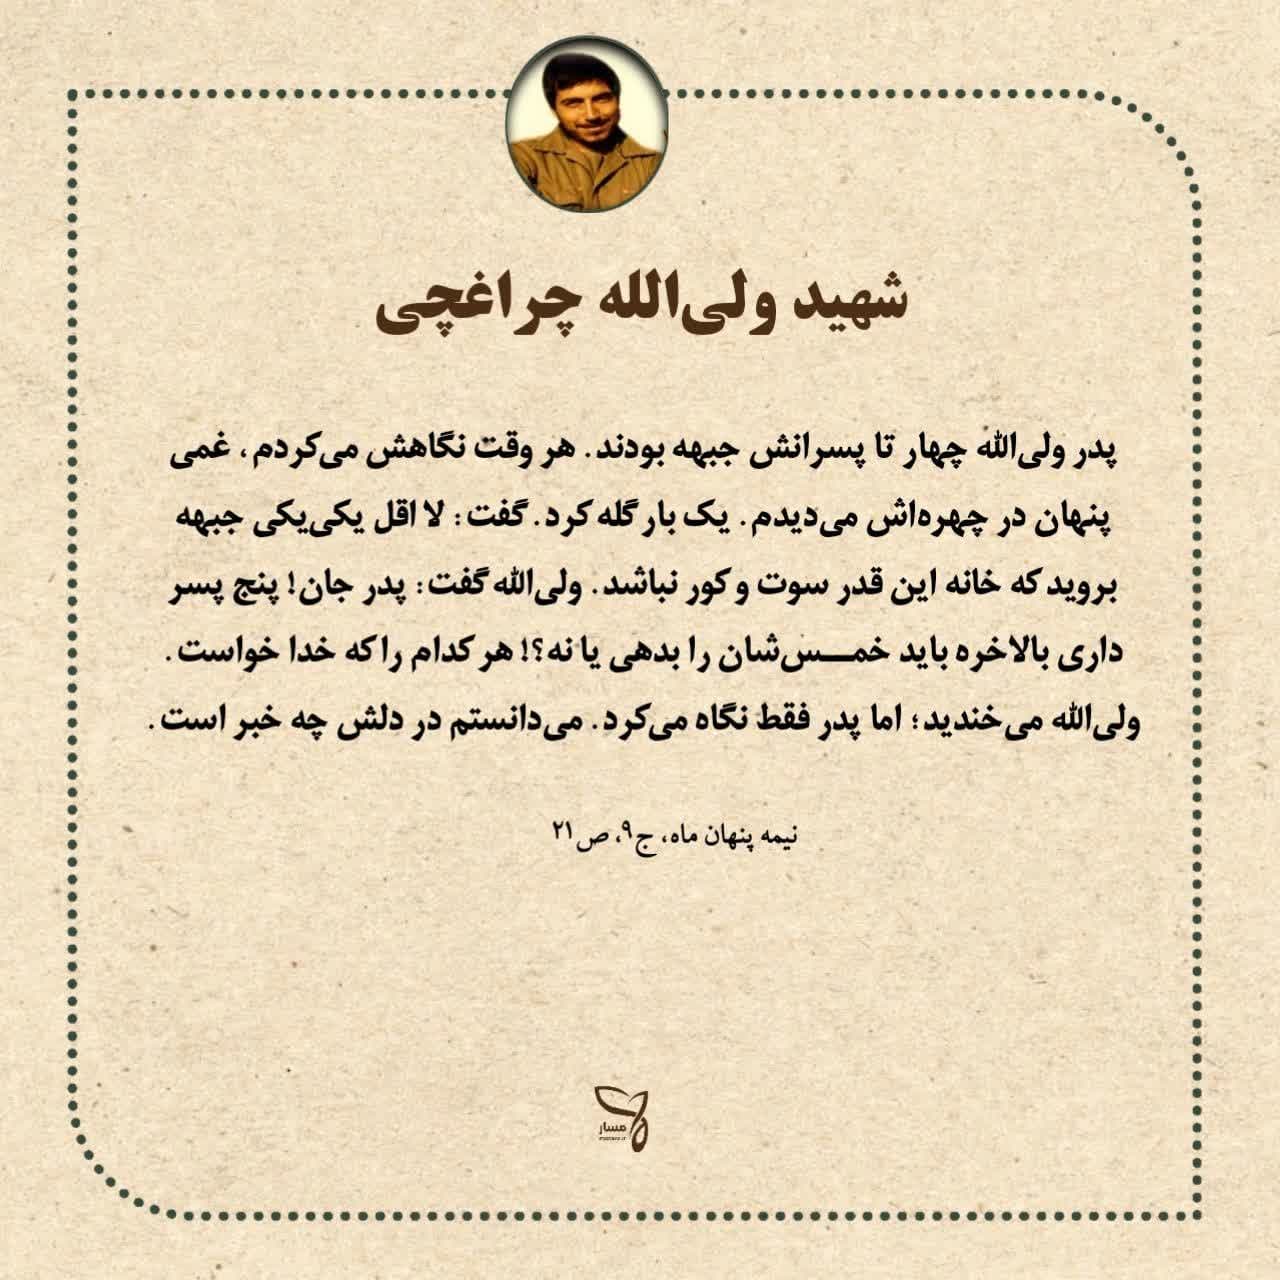 شهید ولی‌الله چراغچی
پدر ولی‌الله چهار تا پسرانش جبهه بودند. هر وقت نگاهش می‌کردم، غمی
پنهان در چهره‌اش می‌دیدم. یک بار گله کرد. گفت: لا اقل یکی‌یکی جبهه
بروید که خانه این قدر سوت و کور نباشد. ولی‌الله گفت: پدر جان! پنج پسر
داری بالاخره باید خمـــس‌شان را بدهی یا نه؟! هر کدام را که خدا خواست.
ولی‌الله می‌خندید؛ اما پدر فقط نگاه می‌کرد. می‌دانستم در دلش چه خبر است.
نیمه پنهان ماه، ج۹، ص۲۱
مسار